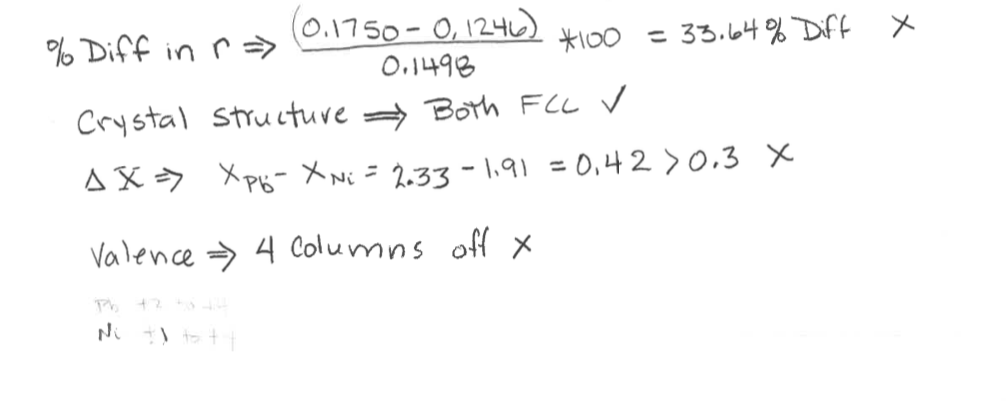 % Diff in r ⇒ (0.1750 - 0.1246) / 0.1498 *100 = 33.64% Diff ×
Crystal structure ⇒ Both FCC ✓
Δ X ⇒ X Pb - X Ni = 2.33 - 1.91 = 0.42 > 0.3 ×
Valence ⇒ 4 Columns off ×
Pb +2 to +4
Ni +1 to +4